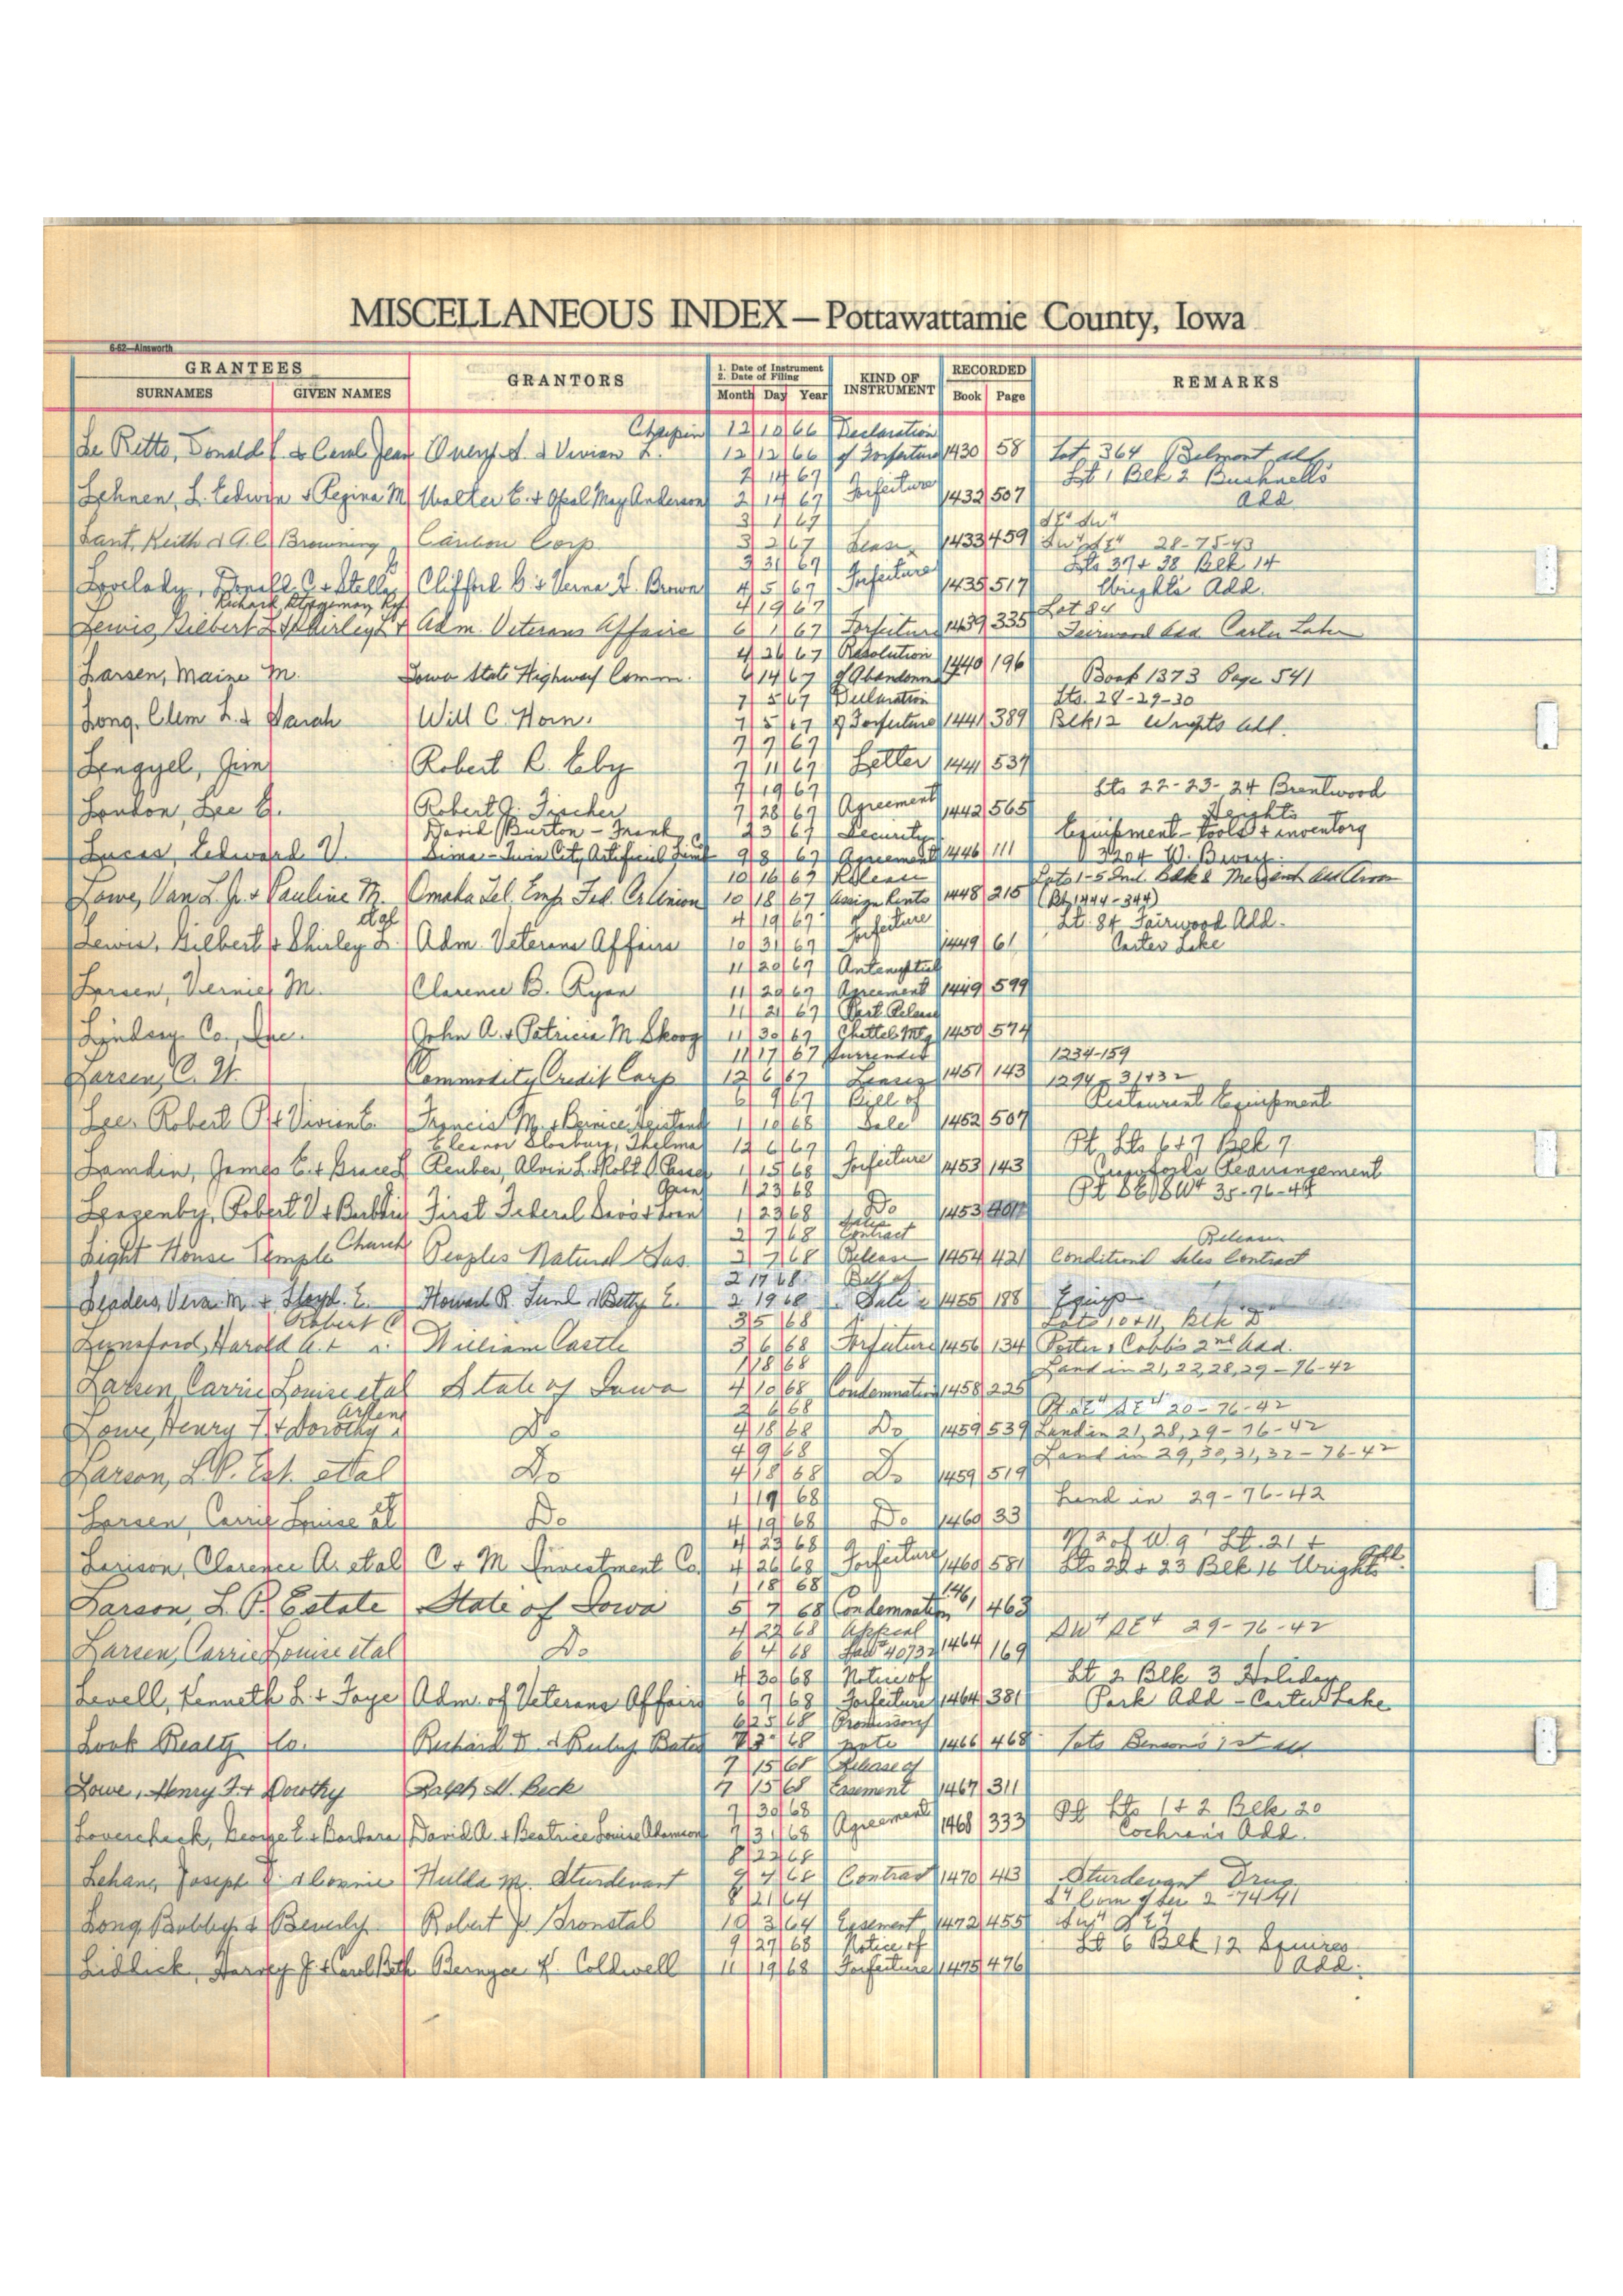 MISCELLANEOUS INDEX — Pottawattamie County, Iowa
6-62—Ainsworth
GRANTEES
SURNAMES GIVEN NAMES
GRANTORS
1. Date of Instrument
2. Date of Filing
Month Day Year
KIND OF INSTRUMENT
RECORDED
Book Page
REMARKS
Chapin 12 10 66 Declaration
Le Retto, Donald & Carol Jean Avery A. & Vivian L. 12 12 66 of Forfeiture 1430 58 Lot 364 Belmont Add
2 14 67 Lt 1 Blk 2 Bushnell's
Lehnen, L. Edwin & Regina M Walter E. & Opal May Anderson 2 14 67 Forfeiture 1432 507 Add
3 1 67
Lant, Keith & A. C. Browning Caribou Corp. 3 2 67 Lease 1433 459 28-75-43
3 31 67 Lts 37 & 38 Blk 14
Lovelady, Donald C. & Stella Clifford G. & Verna H. Brown 4 5 67 Forfeiture 1435 517 Wright's Add.
Richard 4 19 67 Lot 84
Lewis, Gilbert & Shirley Adm. Veterans Affairs 6 1 67 Forfeiture 1439 335 Fairwood Add Carter Lake
4 26 67 Resolution
Larsen, Maine M. Iowa State Highway Comm. 6 14 67 of Abandonm 1440 196 Book 1373 Page 541
7 5 67 Declaration Lts. 28-29-30
Long, Clem L. & Sarah Will C. Horn. 7 5 67 of Forfeiture 1441 389 Blk 12 Wrights Add.
7 7 67
Lengyel, Jim Robert R. Eby 7 11 67 Letter 1441 537
7 19 67 Lts 22-23-24 Brentwood
London, Lee E. Robert J. Fischer 7 28 67 Agreement 1442 565 Heights
David Burton - Frank 23 67 Security Equipment - tools & inventory
Lucas, Edward V. Sima - Twin City Artificial Limb 9 8 67 Agreement 1446 111 3204 W. Bdwy.
10 16 67 Release
Lowe, Van L. Jr. & Pauline M. Omaha Tel. Emp. Fed. Cr Union 10 18 67 Assign Rents 1448 215 (Bk 1444-344)
4 19 67 Forfeiture Lt. 84 Fairwood Add.
Lewis, Gilbert & Shirley L. Adm. Veterans Affairs 10 31 67 1449 61 Carter Lake
11 20 67 Antenuptial
Larsen, Vernie M. Clarence B. Ryan 11 20 67 Agreement 1449 599
11 21 67 Part Release
Lindsay Co., Inc. John A. & Patricia M. Skoog 11 30 67 Chattel Mtg 1450 574
11 17 67 Surrender 1234-159
Larsen, C. W. Commodity Credit Corp 12 6 67 Leases 1451 143 1294-31432
6 9 67 Bill of Restaurant Equipment
Lee, Robert P. & Vivian E. Francis M. & Bernice 1 10 68 Sale 1452 507
Eleanor Slosburg, Thelma 12 6 67 Pt. Lts 6 & 7 Blk 7
Lamdin, James E. & Grace Reuben, Alvin L. & Robt. 1 15 68 Forfeiture 1453 143 Rearrangement
1 23 68 35-76-44
Lengenby, Robert V. & First Federal Sav's & Loan 1 23 68 Do 1453
2 7 68 Sales Contract Release
Light House Temple Church Peoples Natural Gas 2 7 68 Release 1454 421 Conditional Sales Contract
2 17 68 Bill of
Leaders, Vera M. & Lloyd E. Howard R. Lund & Betty E. 2 19 68 Sale 1455 188 Equip
Robert C 3 5 68 Lots 10 & 11, Blk D
Lunsford, Harold A. & William Castle 3 6 68 Forfeiture 1456 134 Potter & Cobb's 2nd Add.
1 18 68 Land in 21, 22, 28, 29-76-42
Larsen, Carrie Louise et al State of Iowa 4 10 68 Condemnation 1458 225
Arlene 2 6 68 20-76-42
Lowe, Henry F. & Dorothy Do 4 18 68 Do 1459 539 Land in 21, 28, 29-76-42
4 9 68 Land in 29, 30, 31, 32-76-42
Larson, L. P. Est. et al Do 4 18 68 Do 1459 519
1 19 68 Land in 29-76-42
Larsen, Carrie Louise et al Do 4 19 68 Do 1460 33
4 23 68 N 2 of W. 9' Lt. 21 &
Larison, Clarence A. et al C & M Investment Co. 4 26 68 Forfeiture 1460 581 Lts 22 & 23 Blk 16 Wrights Add.
1 18 68
Larson, L. P. Estate State of Iowa 5 7 68 Condemnation 1461 463
4 22 68 Appeal SW4 SE4 29-76-42
Larsen, Carrie Louise et al Do 6 4 68 Law 40732 1464 169
4 30 68 Notice of Lt 2 Blk 3 Holiday
Levell, Kenneth L. & Faye Adm. of Veterans Affairs 6 7 68 Forfeiture 1464 381 Park Add - Carter Lake
6 25 68 Promissory
Look Realty Co. Richard D. & Ruby Bates 68 note 1466 468 Lots Benson's 1st Add
7 15 68 Release of
Lowe, Henry F. & Dorothy Ralph W. Beck 7 15 68 Easement 1467 311
7 30 68 Pt Lts 1 & 2 Blk 20
Lovercheck, George E. & Barbara David A. & Beatrice Louise Adamson 7 31 68 Agreement 1468 333 Cochran's Add.
8 22 68
Lehan, Joseph D. & Connie Hulda M. Sturdevant 9 4 68 Contract 1470 413 Sturdevant Drug
8 21 64
Long, Bobby & Beverly Robert J. Gronstal 10 3 64 Easement 1472 455
9 27 68 Notice of Lt 6 Blk 12 Squires
Lidlick, Harvey J. & Carol Beth Bernyce K. Coldwell 11 19 68 Forfeiture 1475 476 Add.